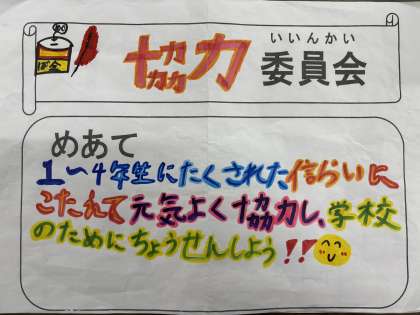 いいんかい
募金
協力 委員会
めあて
1〜4年生にたくされた信らいに
こたえて元気よく協力し、学校
のためにちょうせんしよう!!